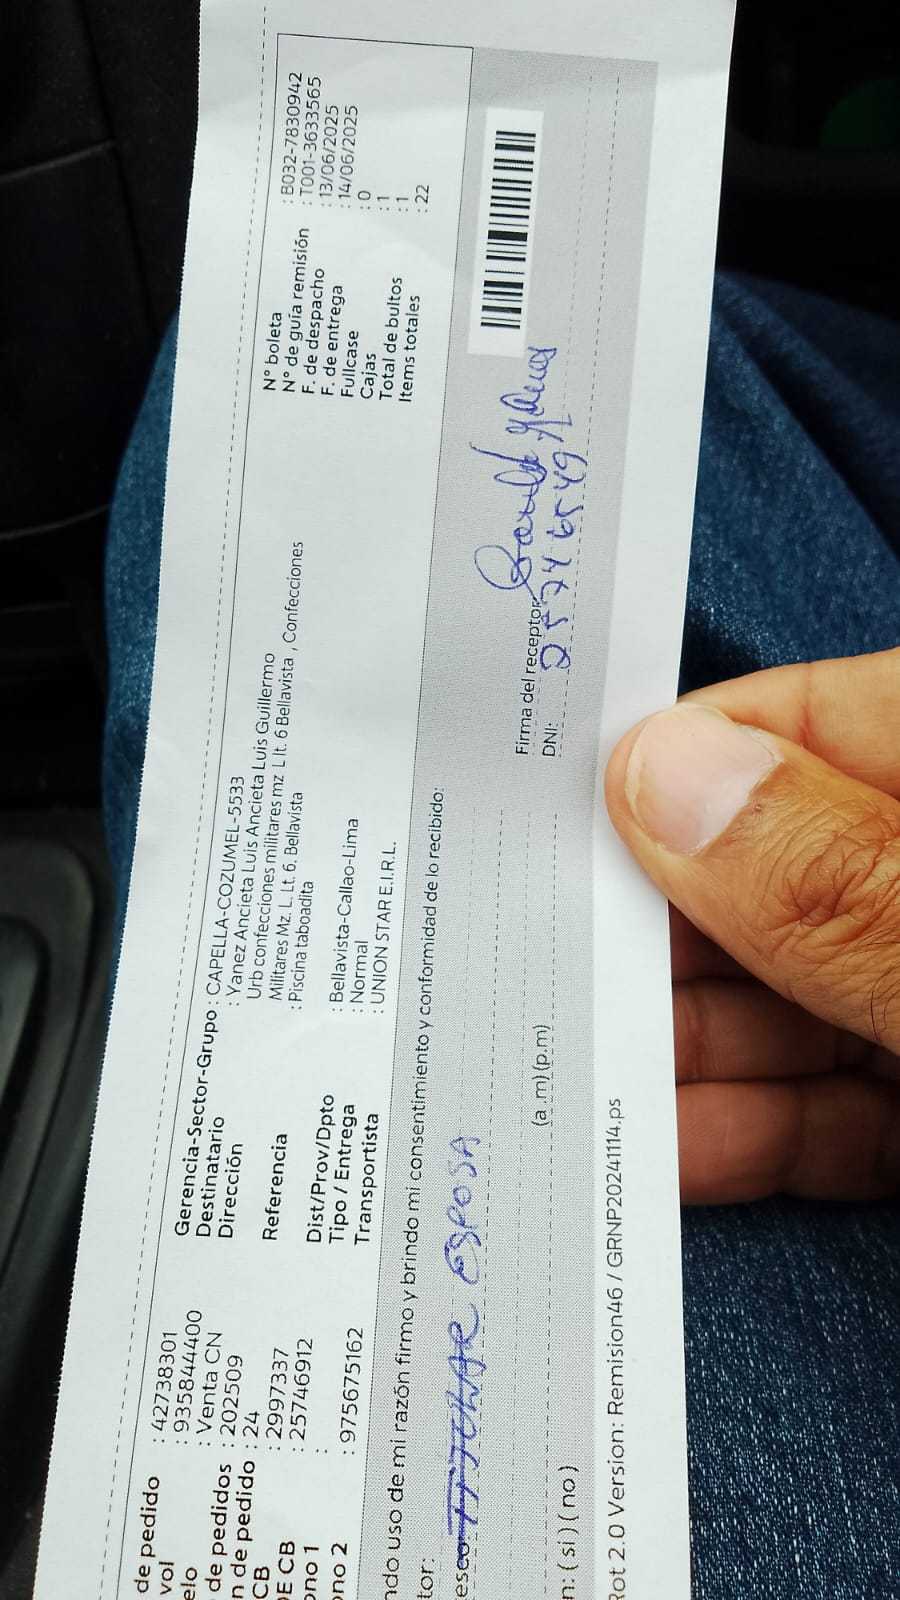 de pedido : 42738301
vol : 9358444400
elo : Venta CN
de pedidos : 202509
n de pedido : 24
CB : 2997337
DE CB : 25746912
ono 1 :
ono 2 : 975675162
Gerencia-Sector-Grupo : CAPELLA-COZUMEL-5533
Destinatario : Yanez Ancieta Luis Ancieta Luis Guillermo
Dirección Urb confecciones militares mz L lt. 6 Bellavista , Confecciones
Militares Mz. L. Lt. 6. Bellavista
Referencia : Piscina taboadita
Dist/Prov/Dpto : Bellavista-Callao-Lima
Tipo / Entrega : Normal
Transportista : UNION STAR E.I.R.L.
N° boleta : B032-7830942
N° de guía remisión : T001-3633565
F. de despacho : 13/06/2025
F. de entrega : 14/06/2025
Fullcase : 0
Cajas : 1
Total de bultos : 1
Items totales : 22
ndo uso de mi razón firmo y brindo mi consentimiento y conformidad de lo recibido:
tor:
esco: TITULAR ESPOSA
(a .m) (p.m)
n: ( si ) ( no )
Firma del receptor:
DNI: 25746549
Rot 2.0 Version: Remision46 / GRNP20241114.ps